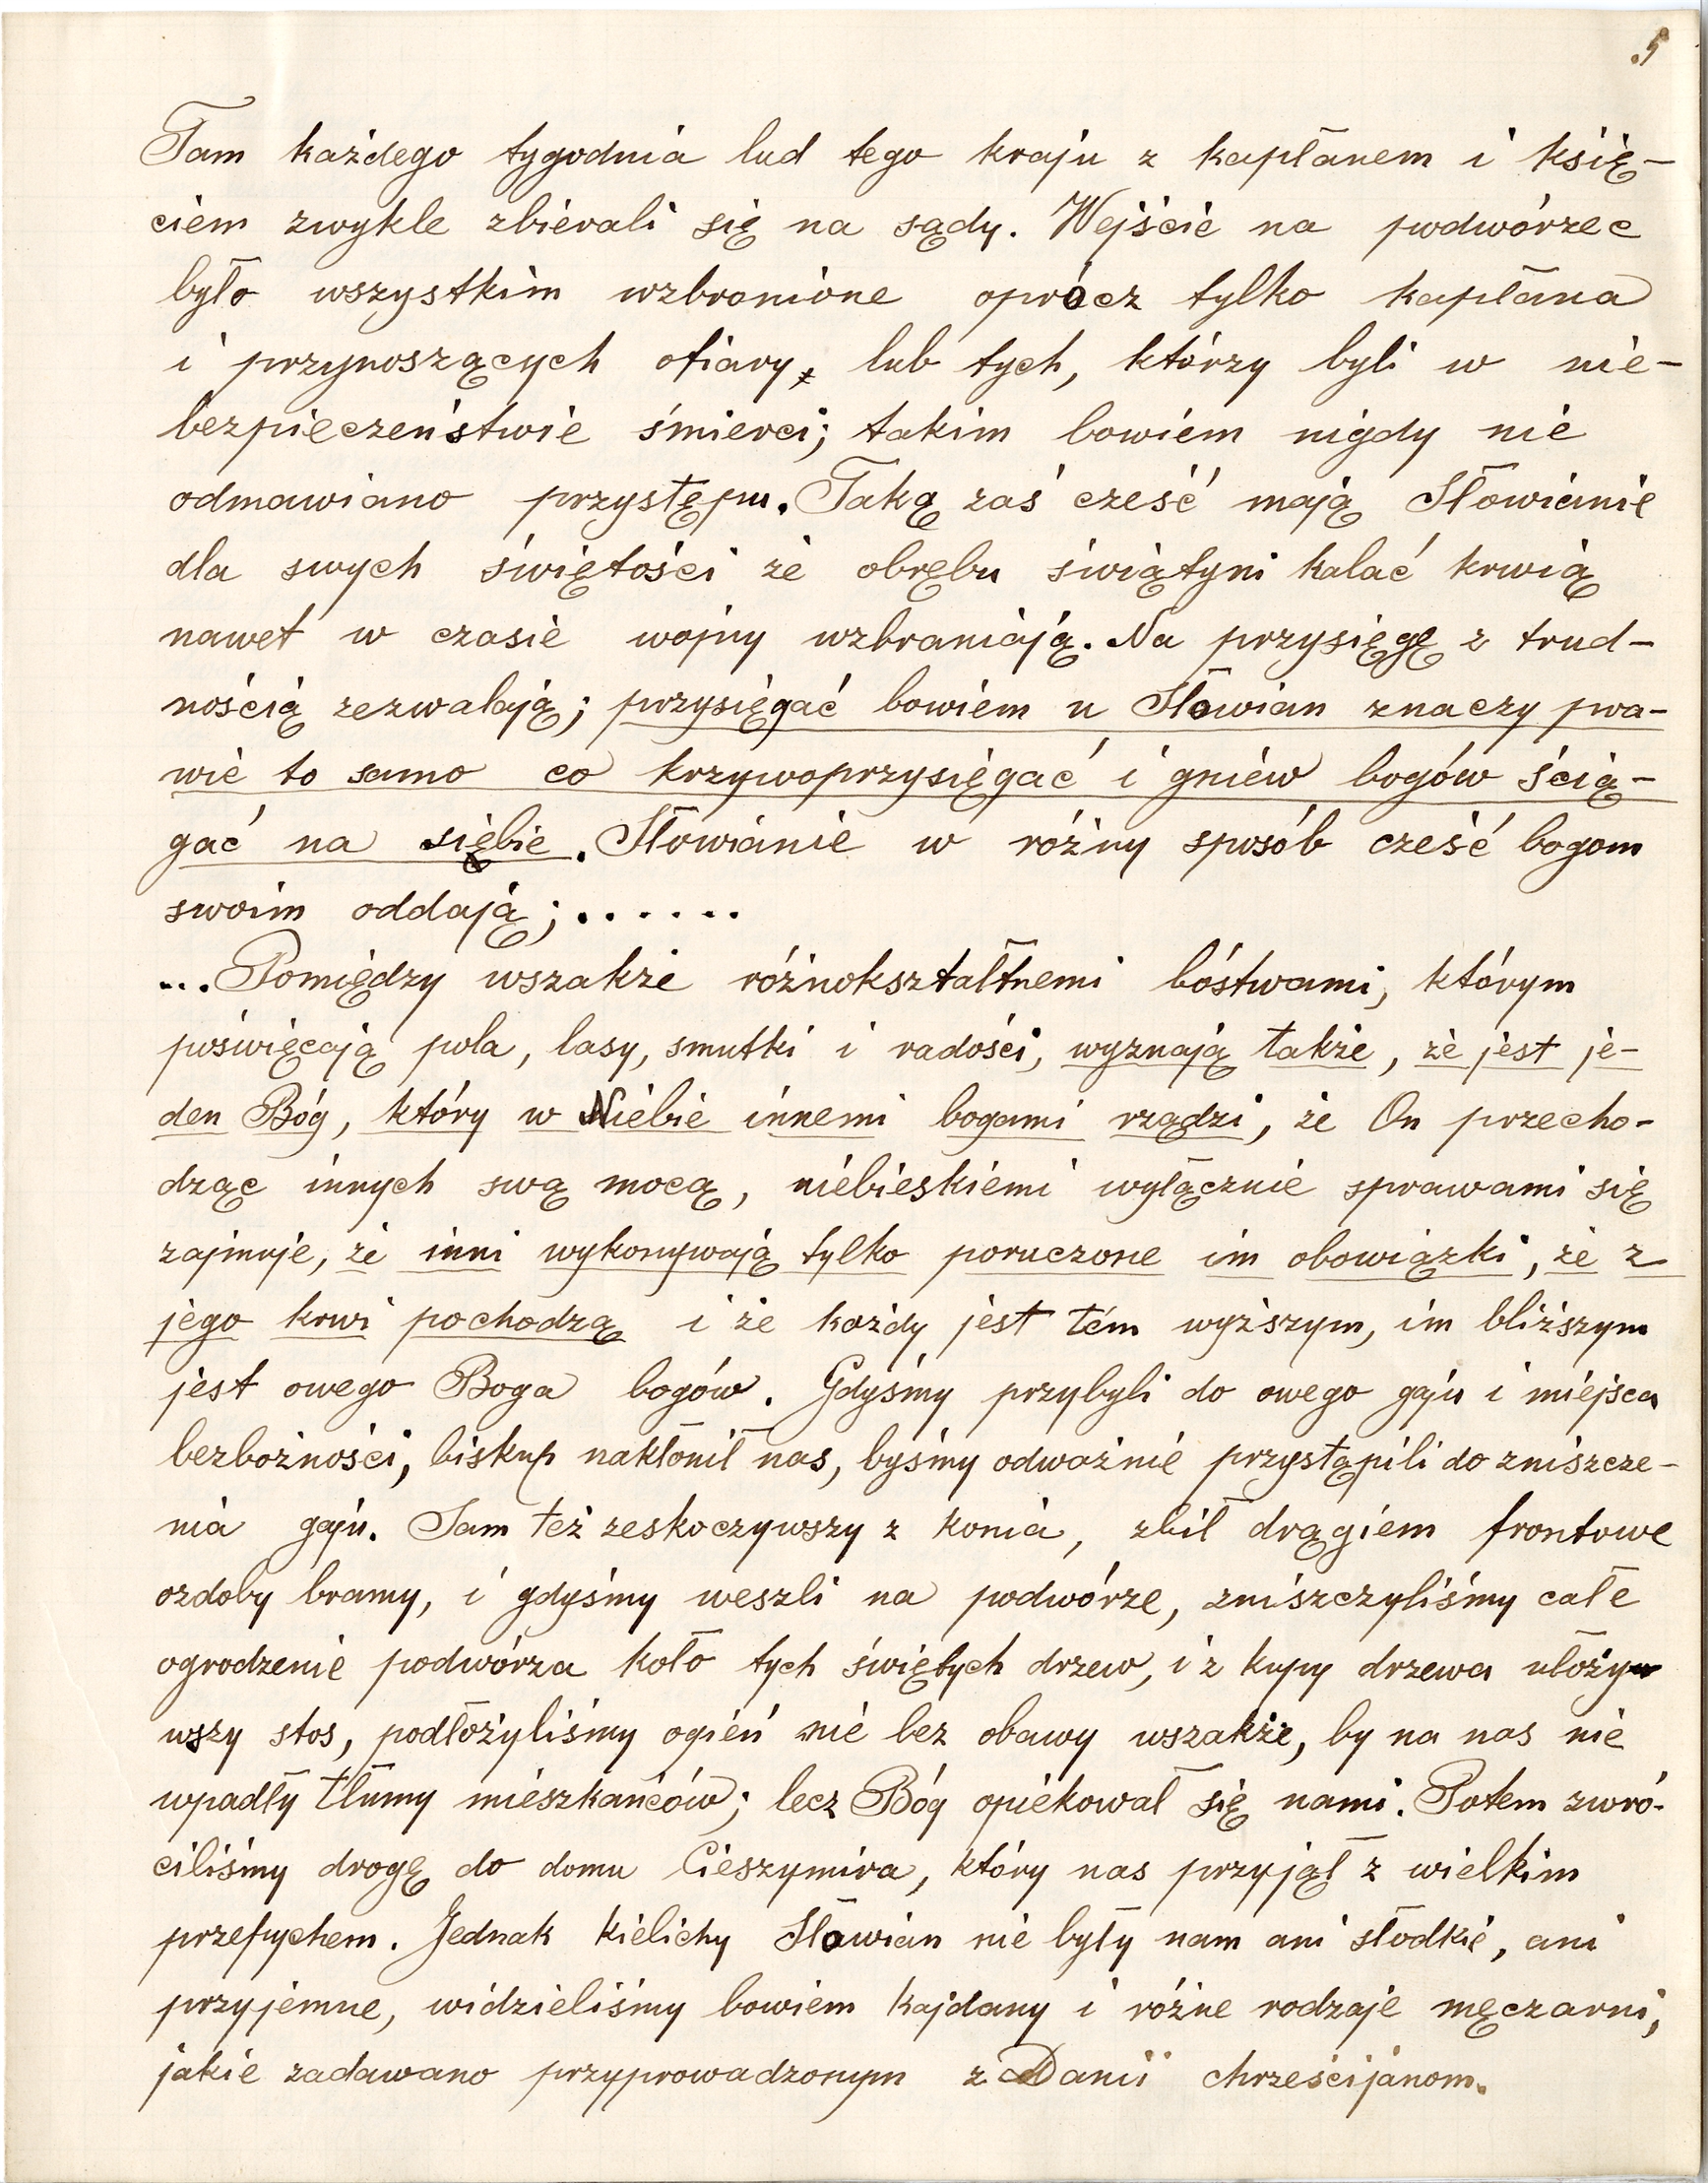 5
Tam każdego tygodnia lud tego kraju z kapłanem i księ-
ciem zwykle zbierali się na sądy. Wejście na podwórzec
było wszystkim wzbronione oprócz tylko kapłana
i przynoszących ofiary, lub tych, którzy byli w nie-
bezpieczeństwie śmierci; takim bowiem nigdy nie
odmawiano przystępu. Taką zaś cześć mają Słowianie
dla swych świętości że obrębu świątyni kalać krwią
nawet w czasie wojny wzbraniają. Na przysięgę z trud-
nością zezwalają; przysięgać bowiem u Słowian znaczy pra-
wie to samo co krzywoprzysięgać i gniew bogów ścią-
gać na siebie. Słowianie w różny sposób cześć bogom
swoim oddają; ......
...Pomiędzy wszakże różnokształtnemi bóstwami, którym
poświęcają pola, lasy, smutki i radości, wyznają także, że jest je-
den Bóg, który w Niebie innemi bogami rządzi, że On przecho-
dząc innych swą mocą, niebieskiemi wyłącznie sprawami się
zajmuje, że inni wykonywają tylko poruczone im obowiązki, że z
jego krwi pochodzą i że każdy jest tém wyższym, im bliższym
jest owego Boga bogów. Gdyśmy przybyli do owego gaju i miejsca
bezbożności, biskup nakłonił nas, byśmy odważnie przystąpili do zniszcze-
nia gaju. Sam też zeskoczywszy z konia, zbił drągiem frontowe
ozdoby bramy, i gdyśmy weszli na podwórze, zniszczyliśmy całe
ogrodzenie podwórza koło tych świętych drzew, i z kupy drzewa ułoży
wszy stos, podłożyliśmy ogień nie bez obawy wszakże, by na nas nie
wpadły tłumy mieszkańców; lecz Bóg opiekował się nami. Potem zwró-
ciliśmy drogę do domu Cieszymira, który nas przyjął z wielkim
przepychem. Jednak kielichy Słowian nie były nam ani słodkie, ani
przyjemne, widzieliśmy bowiem kajdany i różne rodzaje męczarni,
jakie zadawano przyprowadzonym z Danii chrześcijanom.